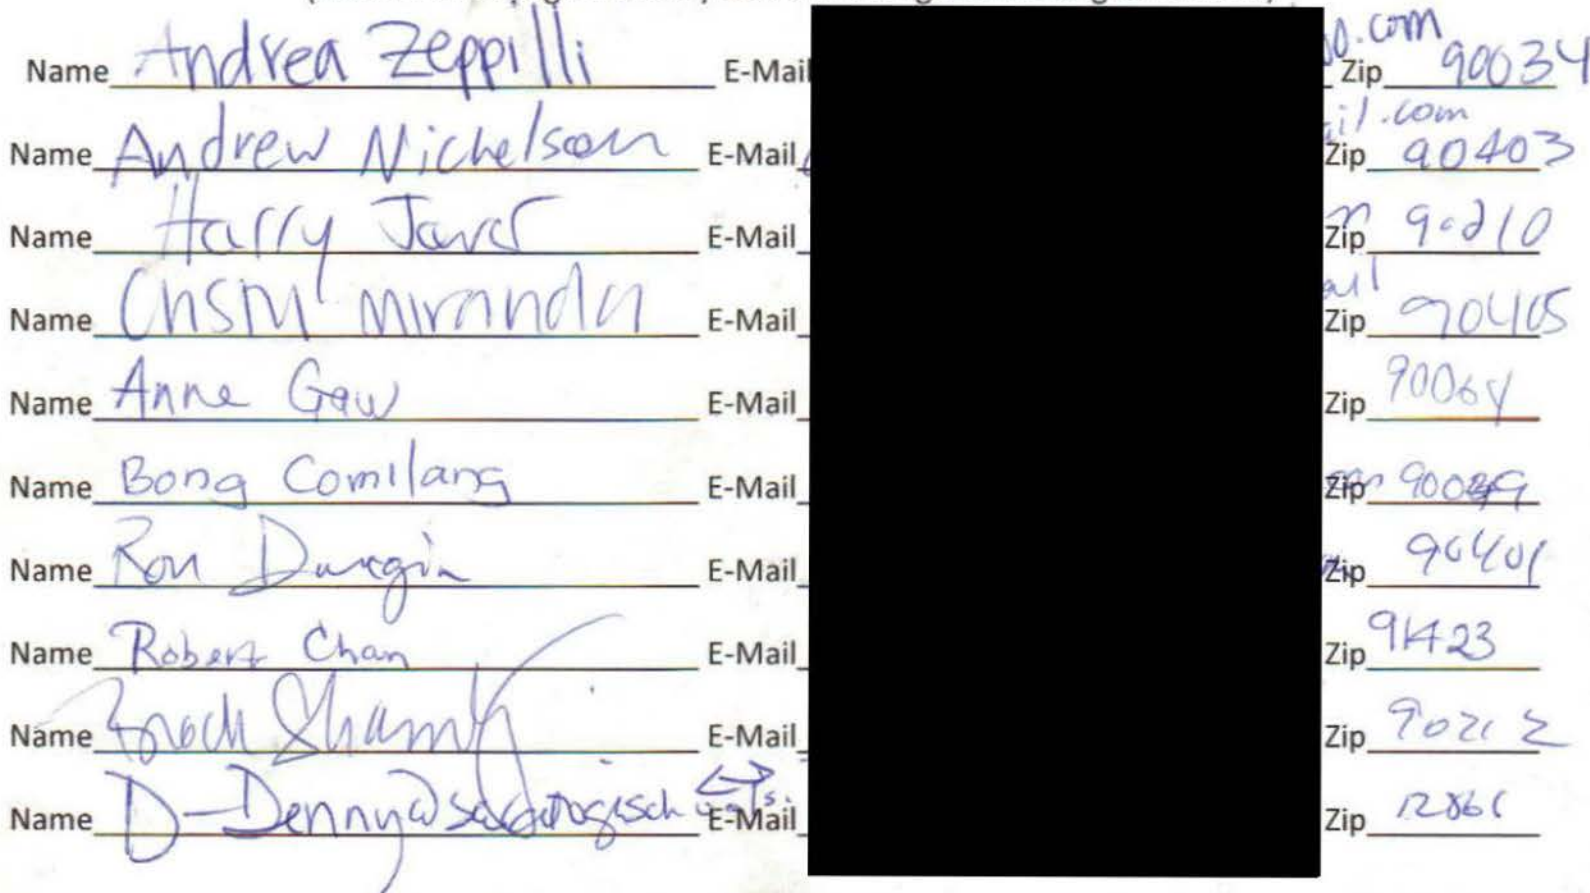 Name Andrea Zeppilli E-Mail oo.com Zip 90034
Name Andrew Nichelson E-Mail ail.com Zip 90403
Name Harry E-Mail Zip 90210
Name Miranda E-Mail ail Zip 90405
Name Anne Gaw E-Mail Zip 90064
Name Bong Comilang E-Mail Zip
Name Ron Durgin E-Mail Zip 90401
Name Robert Chan E-Mail Zip 91423
Name E-Mail Zip 90212
Name E-Mail Zip